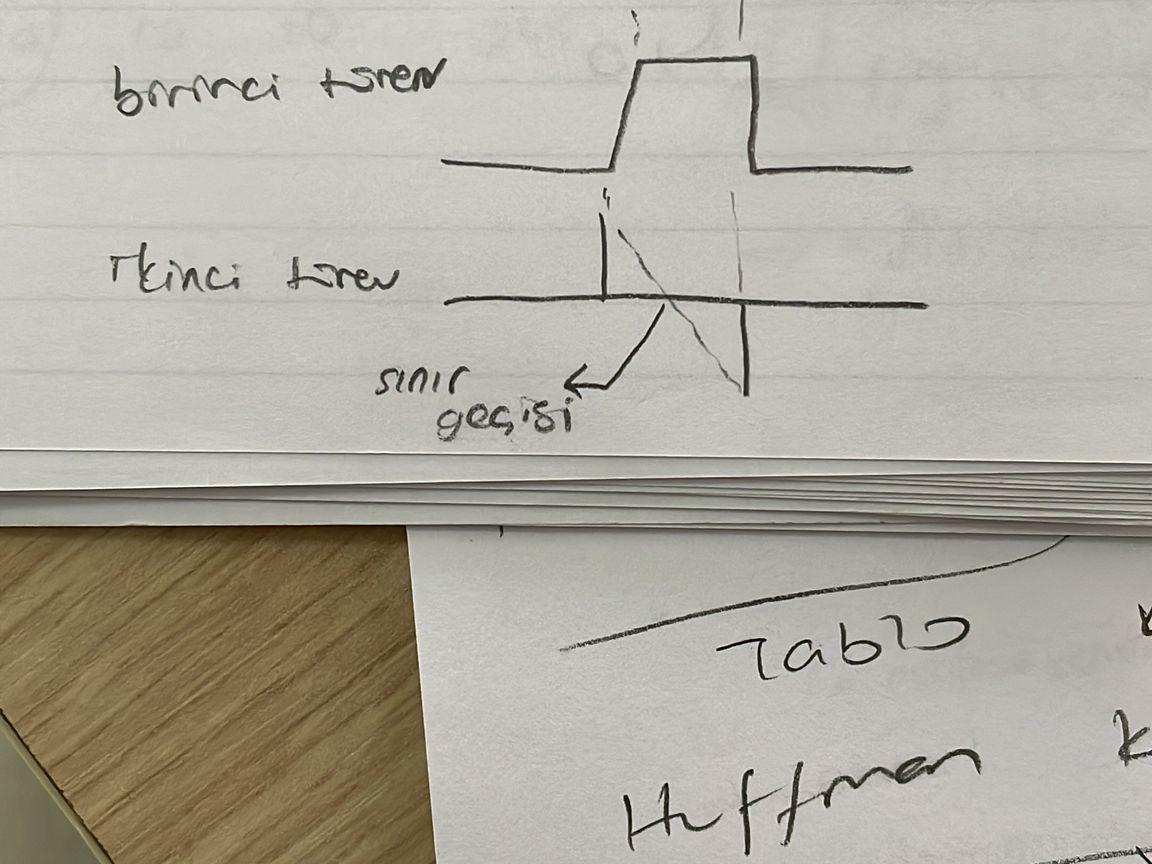 birinci türev
ikinci türev
sınır
geçişi
Tablo
Huffman K